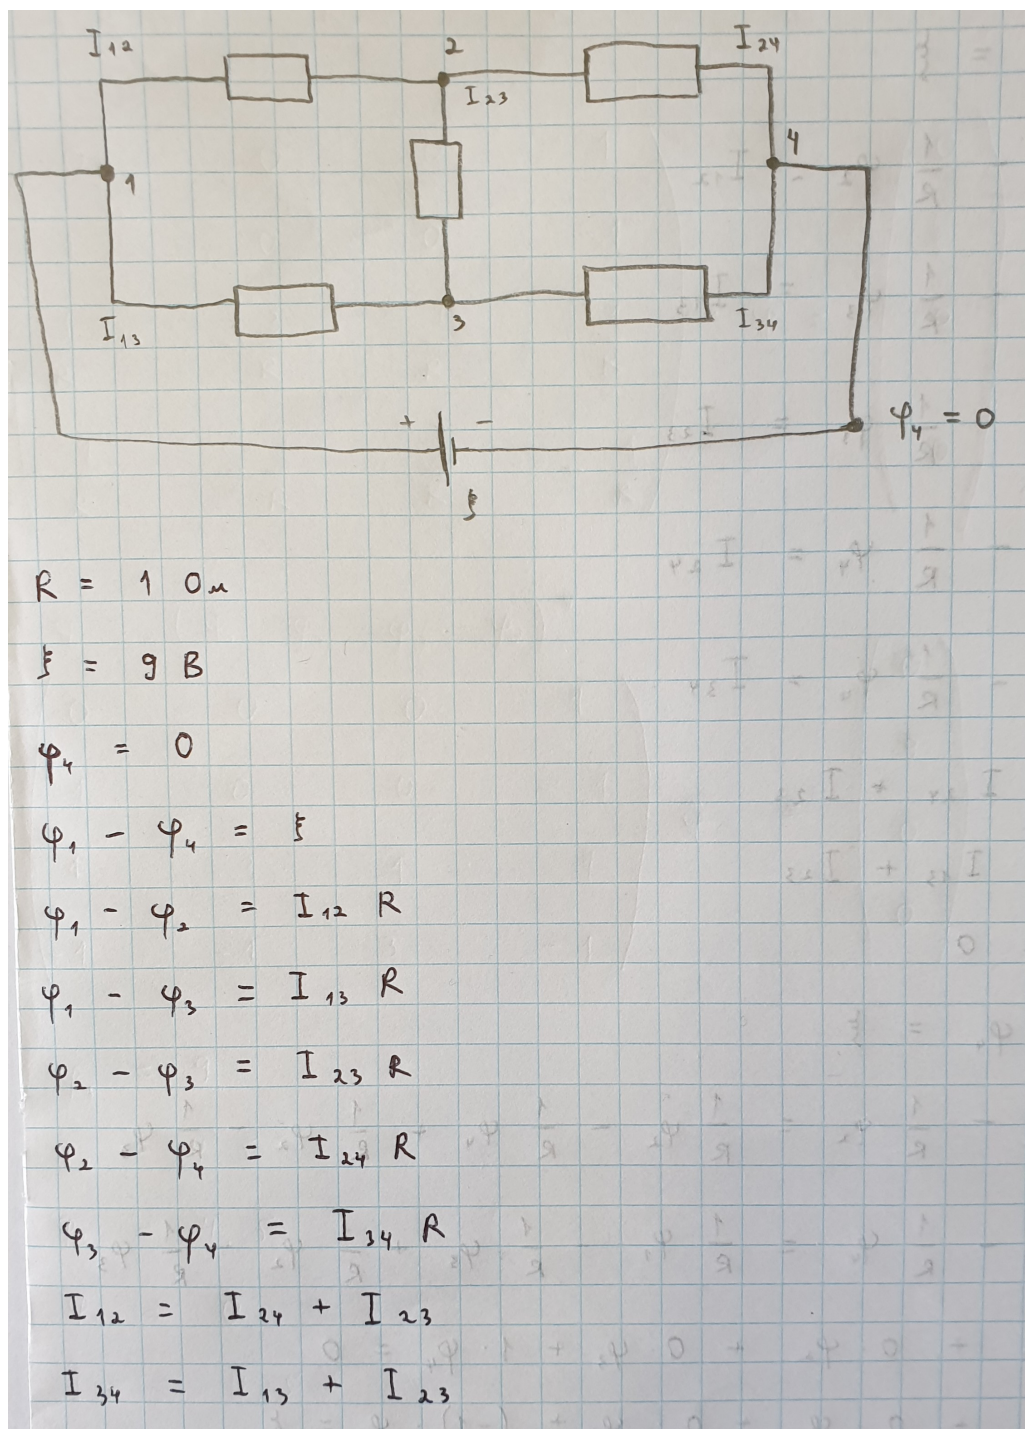 I₁₂ 2 I₂₄
I₂₃
4
1
I₁₃ 3 I₃₄
+ - φ₄ = 0
ξ
R = 1 Ом
ξ = 9 В
φ₄ = 0
φ₁ - φ₄ = ξ
φ₁ - φ₂ = I₁₂ R
φ₁ - φ₃ = I₁₃ R
φ₂ - φ₃ = I₂₃ R
φ₂ - φ₄ = I₂₄ R
φ₃ - φ₄ = I₃₄ R
I₁₂ = I₂₄ + I₂₃
I₃₄ = I₁₃ + I₂₃